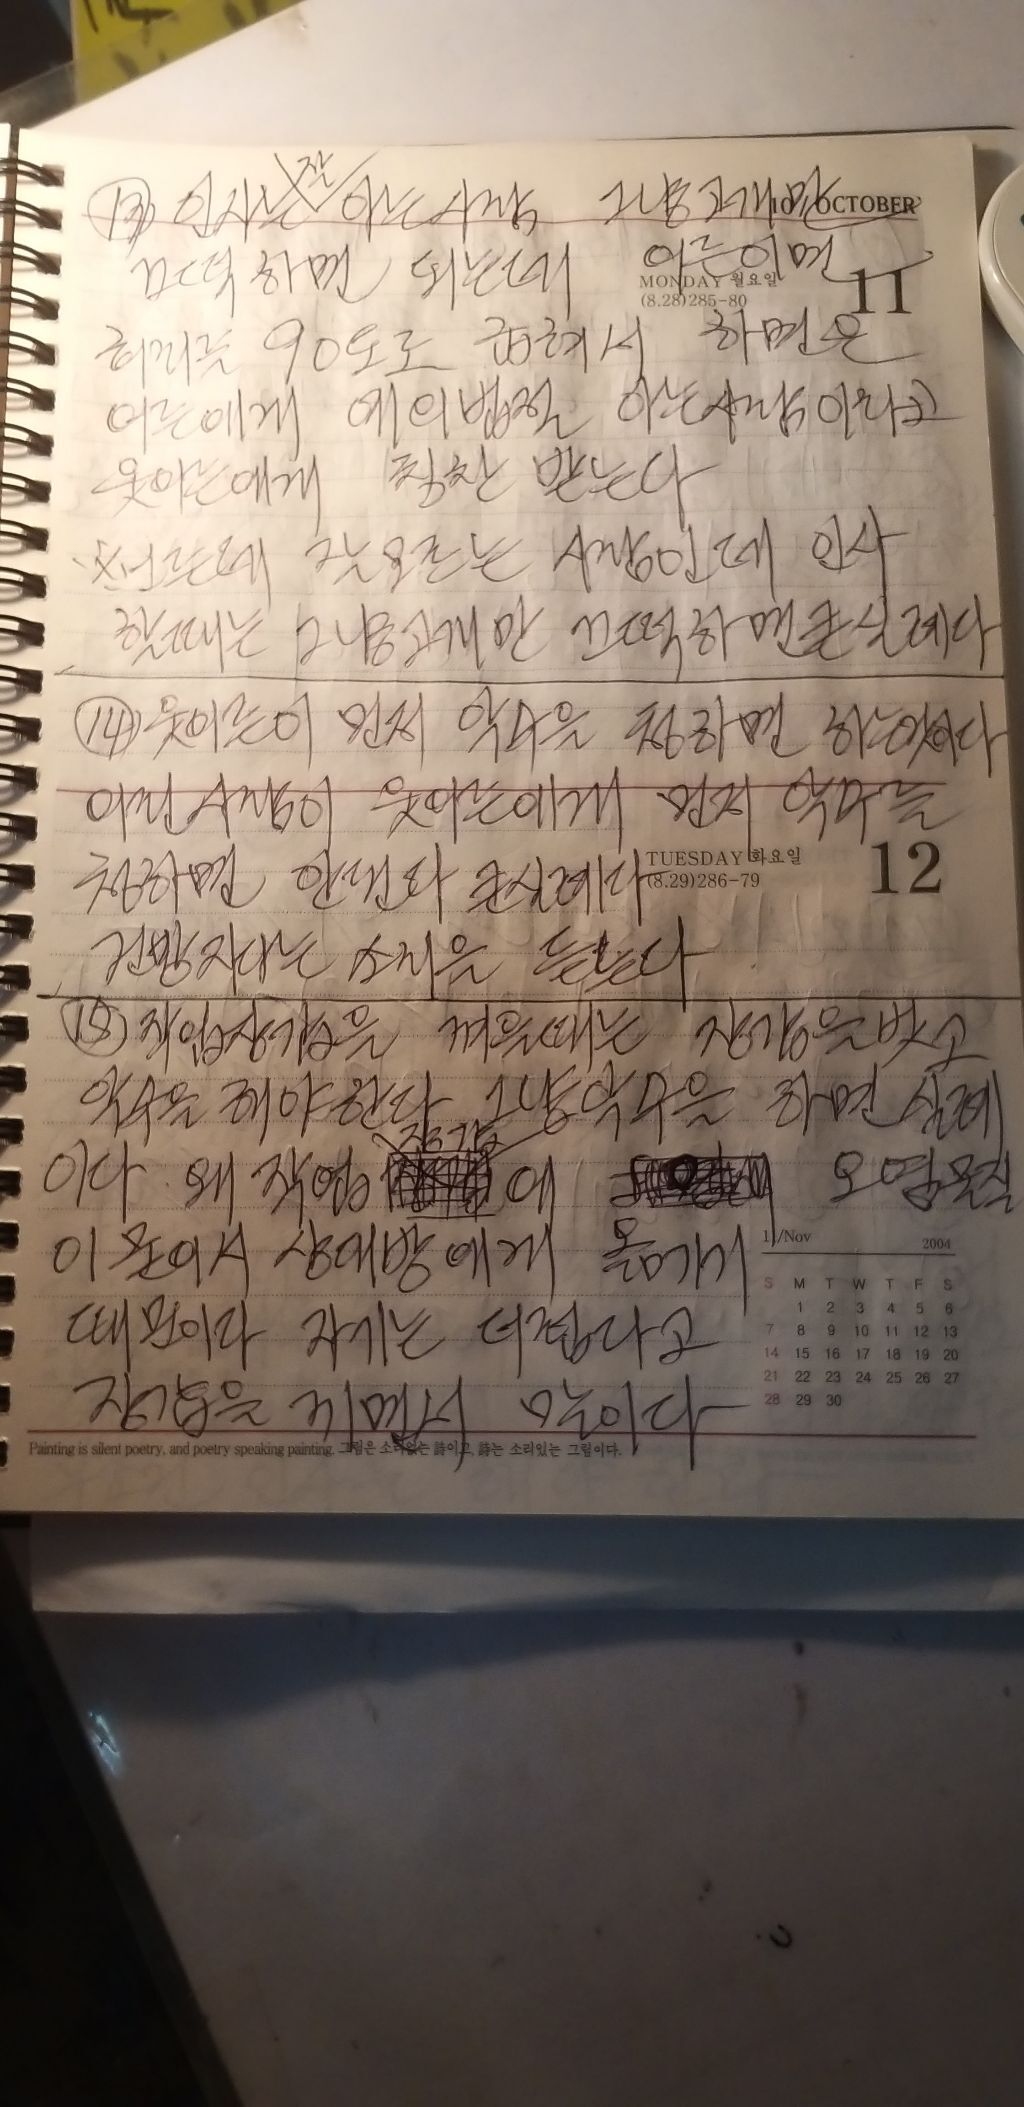 ⑬ 인사는 잘 아는사람 그냥고개만
10/OCTOBER
끄떡하면 되는데 어른이면
MONDAY 월요일
(8.28)285-80
11
허리를 90도로 굽혀서 하면은
어른에게 예의범절 아는사람이라고
웃어른에게 칭찬 받는다
그런데 잘모르는 사람인데 인사
할때는 그냥고개만 끄떡하면큰실례다
⑭ 웃어른이 먼저 악수을 청하면 하는것이다
어린사람이 웃어른에게 먼저 악수를
TUESDAY 화요일
(8.29)286-79
12
청하면 안된다 큰실례다
건방지다는 소리을 듣는다
⑮ 작업장갑을 껴을때는 장갑을벗고
악수을 해야한다 그냥악수을 하면 실례
장갑
이다 왜 작업 에 오염물질
이 묻어서 상대방에게 옮기기
때문이다 자기는 더럽다고
장갑을 끼면서 말이다
11/Nov 2004
S M T W T F S
1 2 3 4 5 6
7 8 9 10 11 12 13
14 15 16 17 18 19 20
21 22 23 24 25 26 27
28 29 30
Painting is silent poetry, and poetry speaking painting. 그림은 소리없는 詩이고, 詩는 소리있는 그림이다.